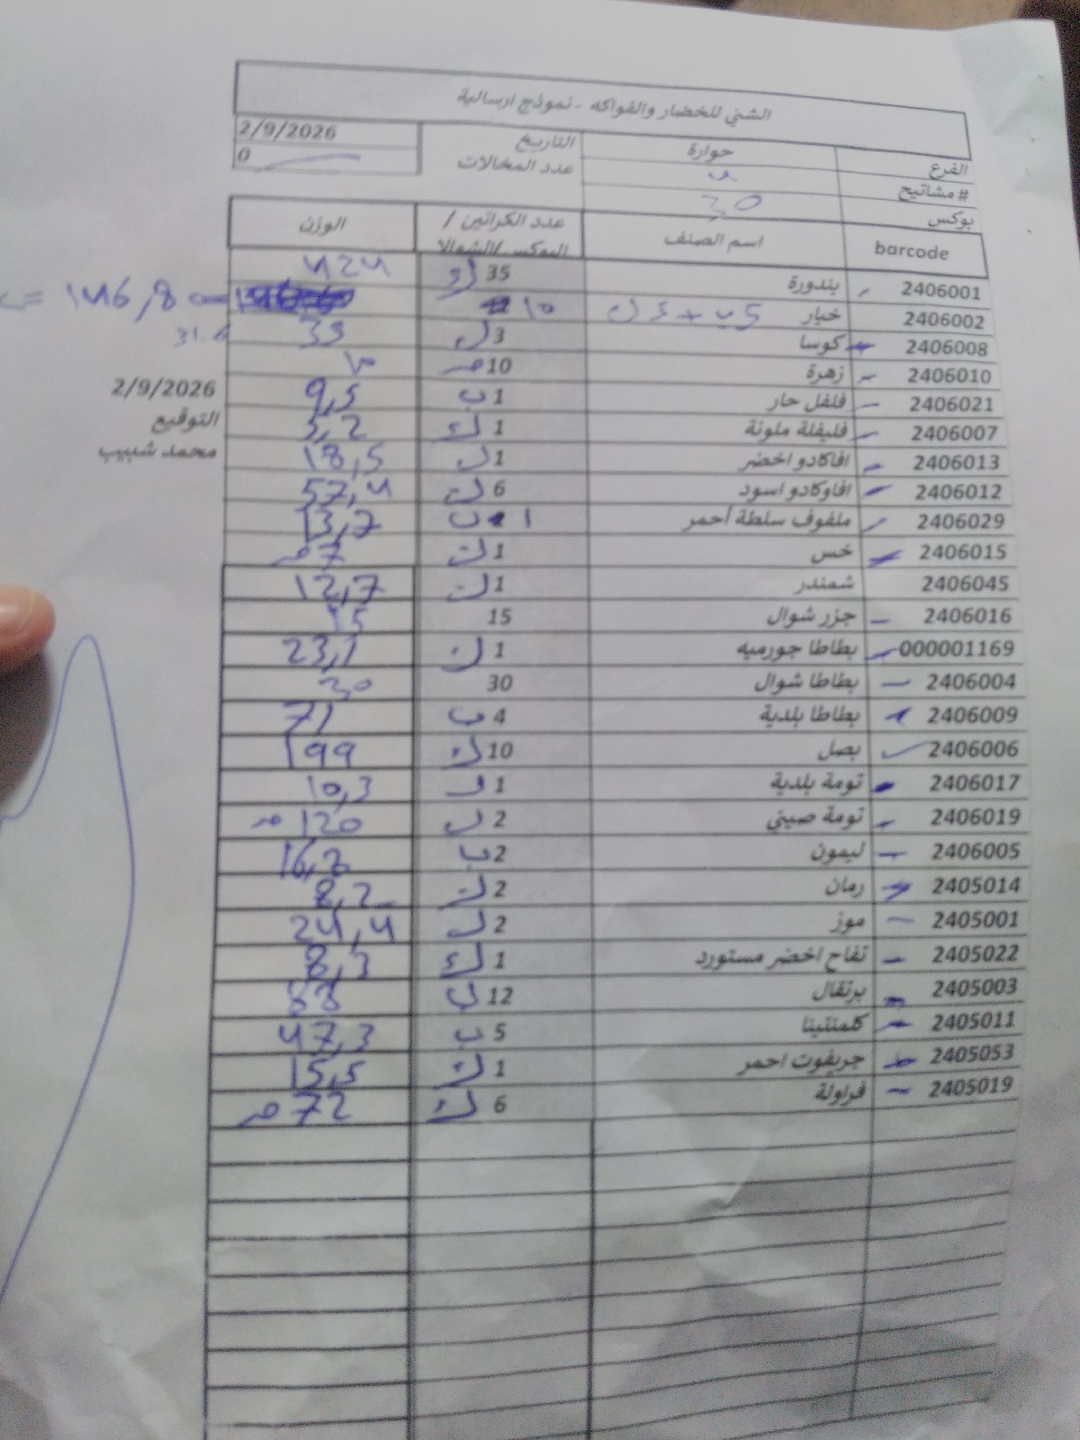 الشني للخضار والفواكه - نموذج ارسالية
الفرع حوارة التاريخ 2/9/2026
#مشاتيح 4 عدد المخالات 0
بوكس 30
barcode اسم الصنف عدد الكراتين / البوكس/الشوالات الوزن
2406001 بندورة 35 ك 424
2406002 خيار 5ب + 5ك 10 146,8 =
2406008 كوسا 3 ك 33 31.6
2406010 زهرة 10 ص 10
2406021 فلفل حار 1 ب 9,5
2406007 فليفلة ملونة 1 ك 3,2
2406013 افاكادو اخضر 1 ك 18,5
2406012 افاوكادو اسود 6 ك 57,4
2406029 ملفوف سلطة أحمر 1 ب 13,7
2406015 خس 1 ك 7 ص
2406045 شمندر 1 ك 12,7
2406016 جزر شوال 15 15
000001169 بطاطا جورميه 1 ك 23,1
2406004 بطاطا شوال 30 30
2406009 بطاطا بلدية 4 ب 71
2406006 بصل 10 ك 199
2406017 تومة بلدية 1 ك 10,3
2406019 تومة صيني 2 ك 120 ص
2406005 ليمون 2 ب
2405014 رمان 2 ك 8,2
2405001 موز 2 ك 24,4
2405022 تفاح اخضر مستورد 1 ك 8,3
2405003 برتقال 12 ب 88
2405011 كلمنتينا 5 ب 47,3
2405053 جريفوت احمر 1 ك 15,5
2405019 فراولة 6 ك 72 ص
2/9/2026
التوقيع
محمد شبيب